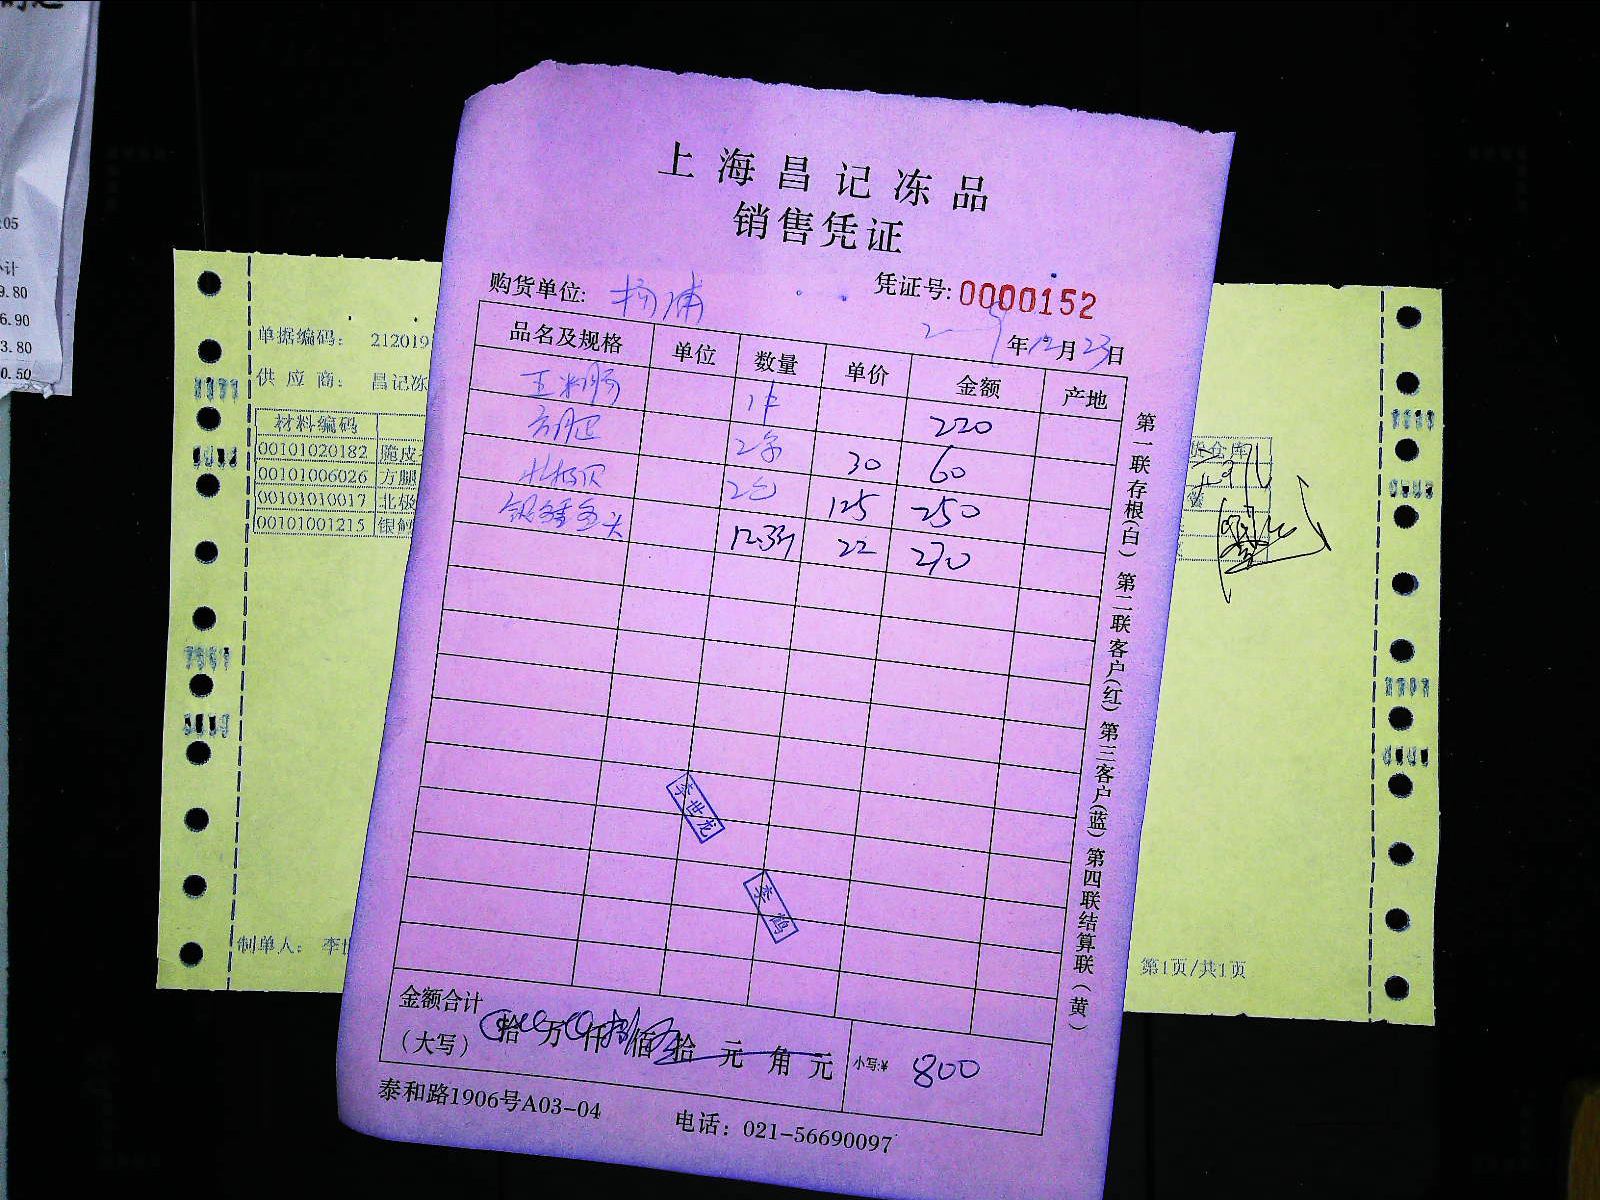 :05
小计
9.80
6.90
3.80
0.50
上海昌记冻品
销售凭证
购货单位: 杨浦
凭证号: 0000152
年12月23日
品名及规格 单位 数量 单价 金额 产地
玉米肠 1件 220
方腿 2条 30 60
北极贝 2包 125 250
银鳕鱼头 12.3斤 22 270
李世龙
李鹤
金额合计
(大写) 拾 万 仟 捌佰 拾 元 角 元 小写:¥ 800
泰和路1906号A03-04 电话: 021-56690097
第一联存根(白) 第二联客户(红) 第三客户(蓝) 第四联结算联(黄)
单据编码: 212019
供应商: 昌记冻
材料编码
00101020182 脆皮
00101006026 方腿
00101010017 北极
00101001215 银鳕
仓库
制单人: 李世
第1页/共1页